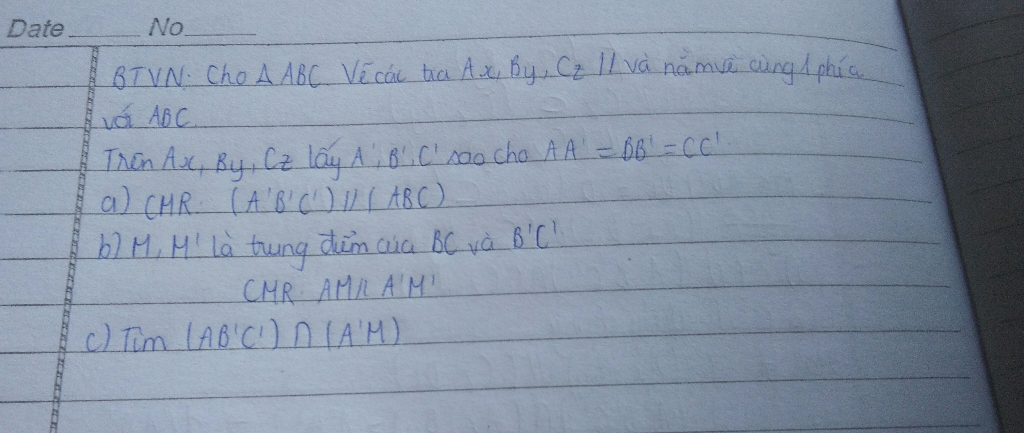 Date No
BTVN: Cho Δ ABC Vẽ các tia Ax, By, Cz // và nằm về cùng 1 phía
với ABC.
Trên Ax, By, Cz lấy A', B', C' sao cho AA' = BB' = CC'
a) CMR: (A'B'C') // (ABC)
b) M, M' là trung điểm của BC và B'C'
CMR: AM // A'M'
c) Tìm (AB'C') ∩ (A'M)